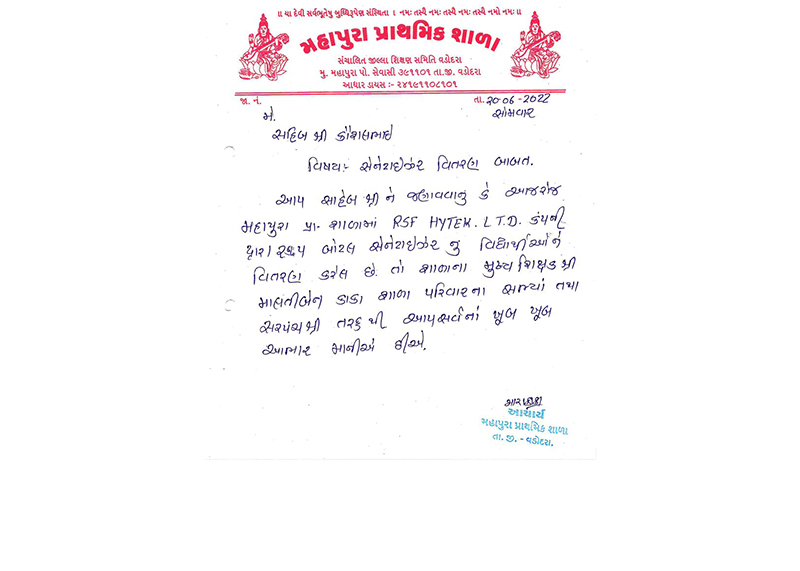 ॥ યા દેવી સર્વભૂતેષુ બુધ્ધિરૂપેણ સંસ્થિતા । નમઃ તસ્યૈ નમઃ તસ્યૈ નમઃ તસ્યૈ નમો નમઃ ॥
મહાપુરા પ્રાથમિક શાળા
સંચાલિત જીલ્લા શિક્ષણ સમિતિ વડોદરા
મુ. મહાપુરા પો. સેવાસી ૩૯૧૧૦૧ તા.જી. વડોદરા
આધાર ડાયસ :- ૨૪૧૯૧૧૦૮૧૦૧
જા. નં. તા. ૨૦-૦6-2૦22
સોમવાર
મે.
સાહિબ શ્રી કૌશલભાઈ
વિષય:- સેનેટાઈઝર વિતરણ બાબત.
આપ સાહેબ શ્રી ને જણાવવાનું કે આજરોજ
મહાપુરા પ્રા. શાળામાં RSF HYTEK. L.T.D. કંપની
દ્વારા બોટલ સેનેટાઈઝર નુ વિદ્યાર્થીઓને
વિતરણ કરેલ છે. તો શાળાના મુખ્ય શિક્ષક શ્રી
માલતીબેન ડાડા શાળા પરિવારના સભ્યો તથા
સરપંચશ્રી તરફ થી આપસર્વનાં ખૂબ ખૂબ
આભાર માનીએ છીએ.
આચાર્ય
મહાપુરા પ્રાથમિક શાળા
તા. જી. - વડોદરા.